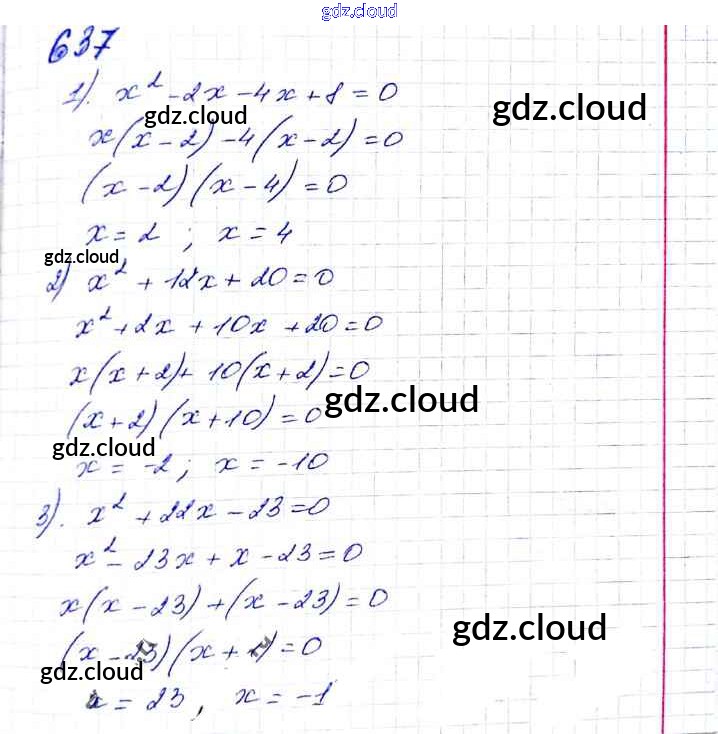 gdz.cloud
637
1). x² - 2x - 4x + 8 = 0
gdz.cloud
gdz.cloud
x(x - 2) - 4(x - 2) = 0
(x - 2)(x - 4) = 0
x = 2 ; x = 4
gdz.cloud
2) x² + 12x + 20 = 0
x² + 2x + 10x + 20 = 0
x(x + 2) + 10(x + 2) = 0
(x + 2)(x + 10) = 0
gdz.cloud
gdz.cloud
x = -2 ; x = -10
3). x² + 22x - 23 = 0
x² - 23x + x - 23 = 0
x(x - 23) + (x - 23) = 0
(x - 23)(x + 1) = 0
gdz.cloud
gdz.cloud
x = 23 , x = -1